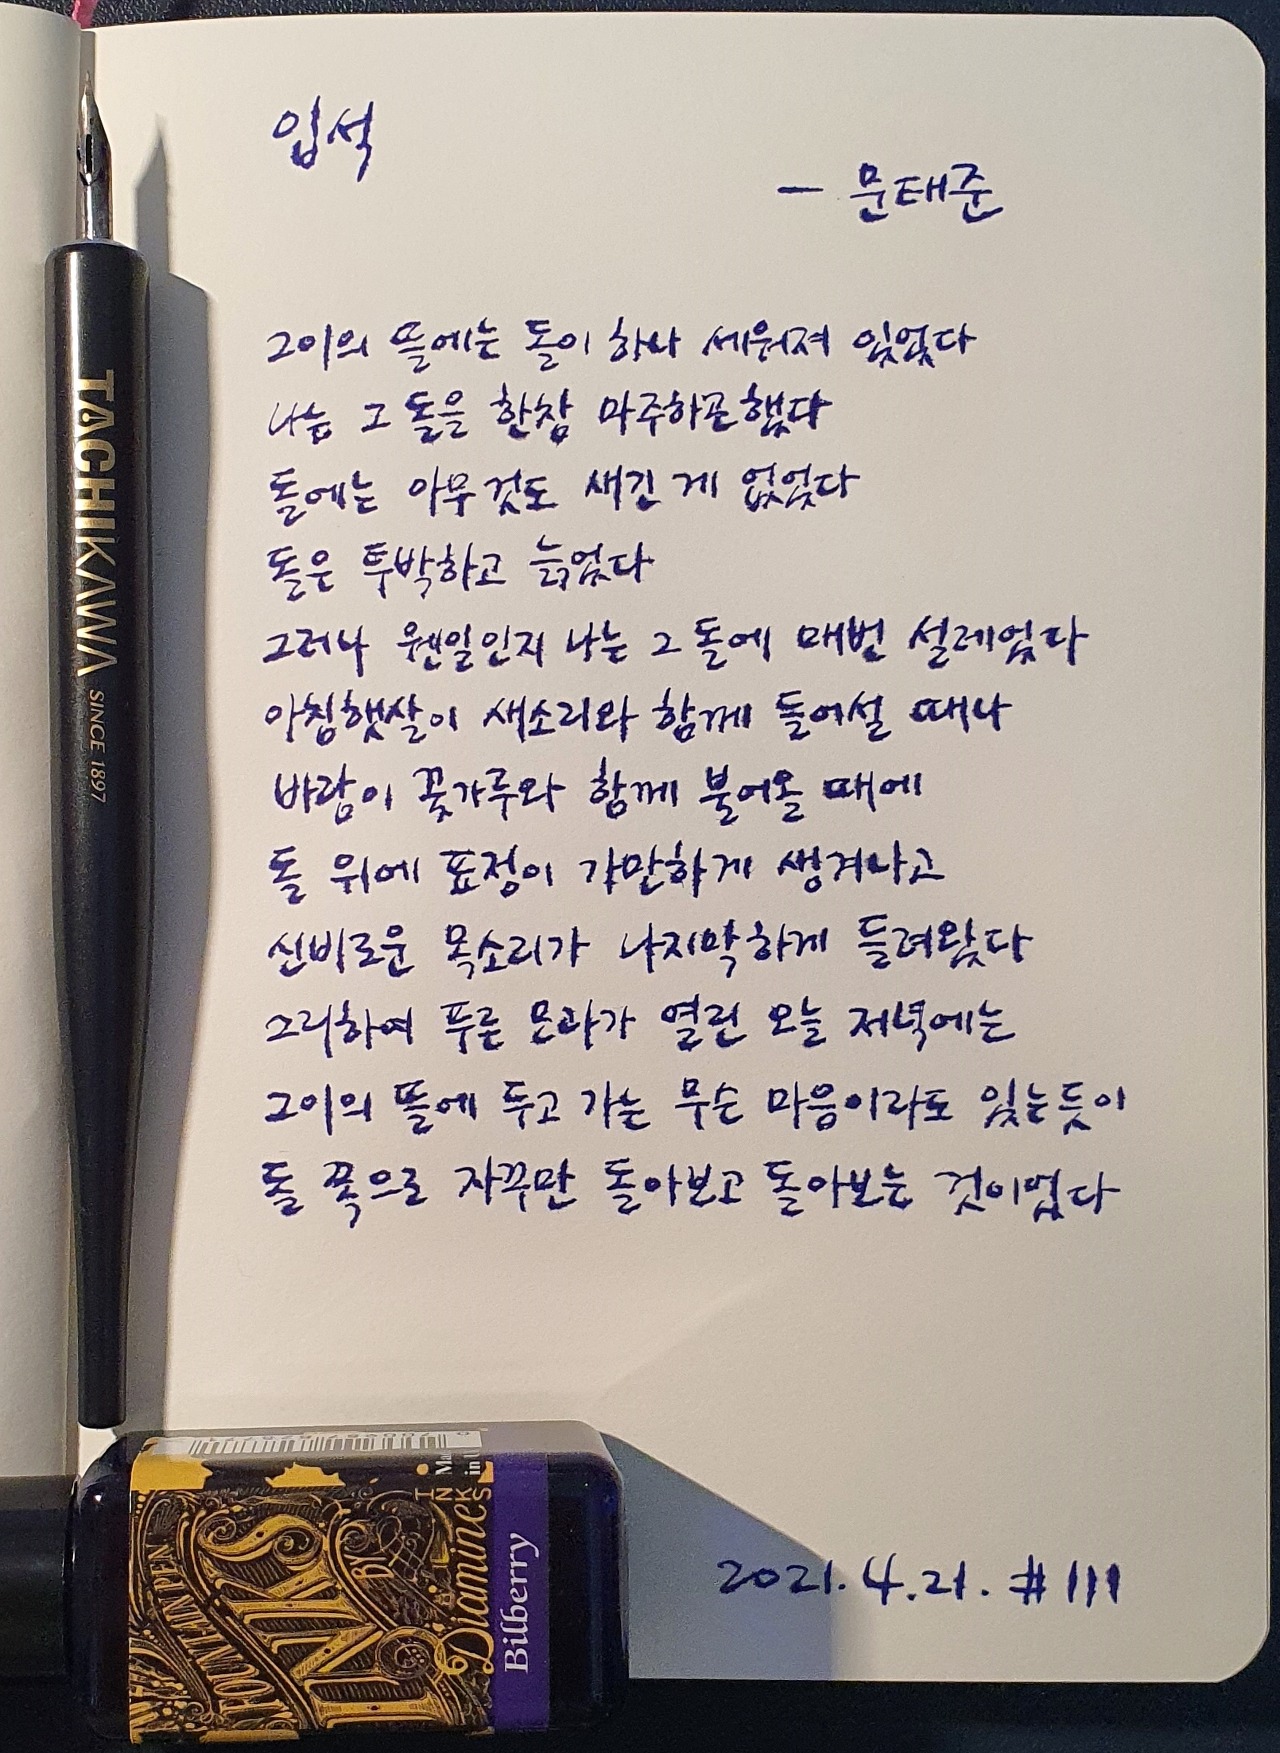 입석
— 문태준
그이의 뜰에는 돌이 하나 세워져 있었다
나는 그 돌을 한참 마주하곤 했다
돌에는 아무 것도 새긴 게 없었다
돌은 투박하고 늙었다
그러나 웬일인지 나는 그 돌에 매번 설레었다
아침햇살이 새소리와 함께 들어설 때나
바람이 꽃가루와 함께 불어올 때에
돌 위에 표정이 가만하게 생겨나고
신비로운 목소리가 나지막하게 들려왔다
그리하여 푸른 모과가 열린 오늘 저녁에는
그이의 뜰에 두고 가는 무슨 마음이라도 있는듯이
돌 쪽으로 자꾸만 돌아보고 돌아보는 것이었다
2021.4.21. #111
TACHIKAWA SINCE 1897
FOUNTAIN PEN
INKS
BY
Diamine
Bilberry